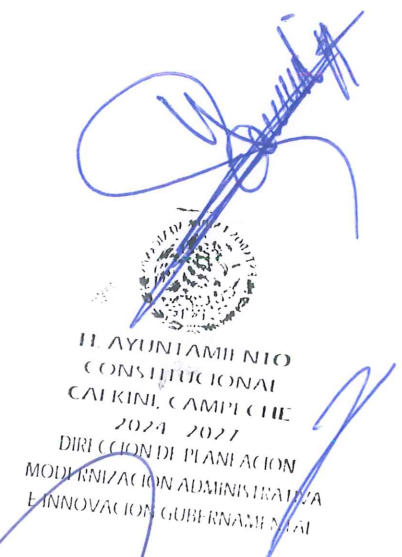 H. AYUNTAMIENTO
CONSTITUCIONAL
CALKINI, CAMPECHE
2024 2027
DIRECCION DE PLANEACION
MODERNIZACION ADMINISTRATIVA
E INNOVACION GUBERNAMENTAL